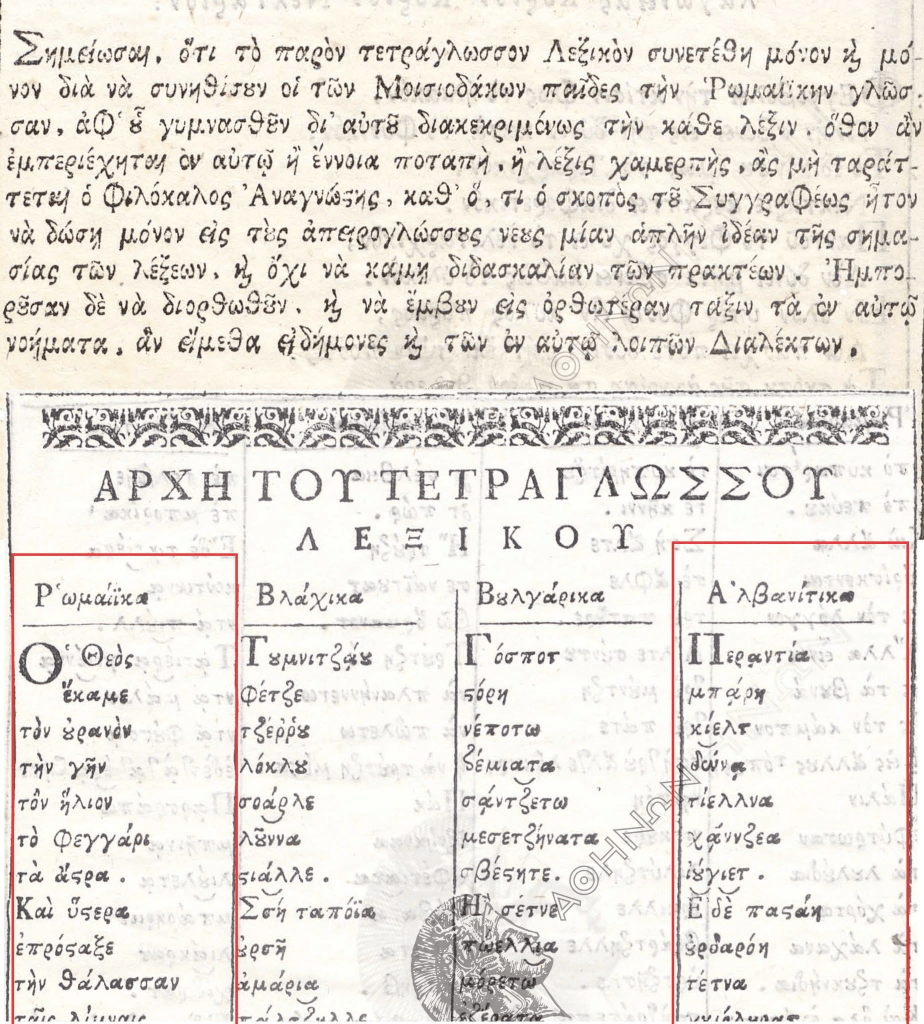 Σημείωσαι, ὅτι τὸ παρὸν τετράγλωσσον Λεξικὸν συνετέθη μόνον ϗ μό-
νον διὰ νὰ συνηθίσȣν οἱ τῶν Μοισιοδάκων παῖδες τὴν Ῥωμαίϊκην γλῶσ-
σαν, ἀφ' ȣ̓͂ γυμνασθȣ͂ν δι' αὐτȣ͂ διακεκριμένως τὴν κάθε λέξιν. ὅθεν ἂν
ἐμπεριέχηται ἐν αὐτῷ ἢ ἔννοια ποταπὴ, ἢ λέξις χαμερπὴς, ἂς μὴ ταράτ-
τεται ὁ Φιλόκαλος Ἀναγνώϛης, καθ' ὅ, τι ὁ σκοπὸς τȣ͂ Συγγραφέως ἦτον
νὰ δώσῃ μόνον εἰς τȣ̀ς ἀπειρογλώσσȣς νέȣς μίαν ἁπλῆν ἰδέαν τῆς σημα-
σίας τῶν λέξεων, ϗ ὄχι νὰ κάμῃ διδασκαλίαν τῶν πρακτέων. Ἠμπο-
ρȣ͂σαν δὲ νὰ διορθωθȣ͂ν, ϗ νὰ ἔμβȣν εἰς ὀρθωτέραν τάξιν τὰ ἐν αὐτῷ
νοήματα, ἂν εἴμεθα εἰδήμονες ϗ τῶν ἐν αὐτῷ λοιπῶν Διαλέκτων.
ΑΡΧΗ ΤΟΥ ΤΕΤΡΑΓΛΩΣΣΟΥ
ΛΕΞΙΚΟΥ
Ῥωμαίϊκα Βλάχικα Βȣλγάρικα Ἀλβανίτικα
Ὁ Θεὸς Τȣμνιτζάȣ Γόσποτ Περαντία
ἔκαμε φέτζε ϛόρη μπάρη
τὸν ȣ̓ρανὸν τζέρρȣ νέποτω κίελτ
τὴν γῆν λόκλȣ ζέμιατα δȣ́να
τὸν ἥλιον σοάρλε σάντζετω τίελλνα
τὸ φεγγάρι λȣ͂ννα μεσετζήνατα χάννζεα
τὰ ἄϛρα. ϛιάλλε. σβέσητε. ἰύγιετ.
Καὶ ὕϛερα Σσὴ ταπόϊα Ἠ σέτνε Ἐδὲ παϛάη
ἐπρόϛαξε ȣ̓ρσῆ πωελλία ȣ̓ρδαρόη
τὴν θάλασσαν ἀμάρια μόρετω τέτνα
ταῖς λίμναις